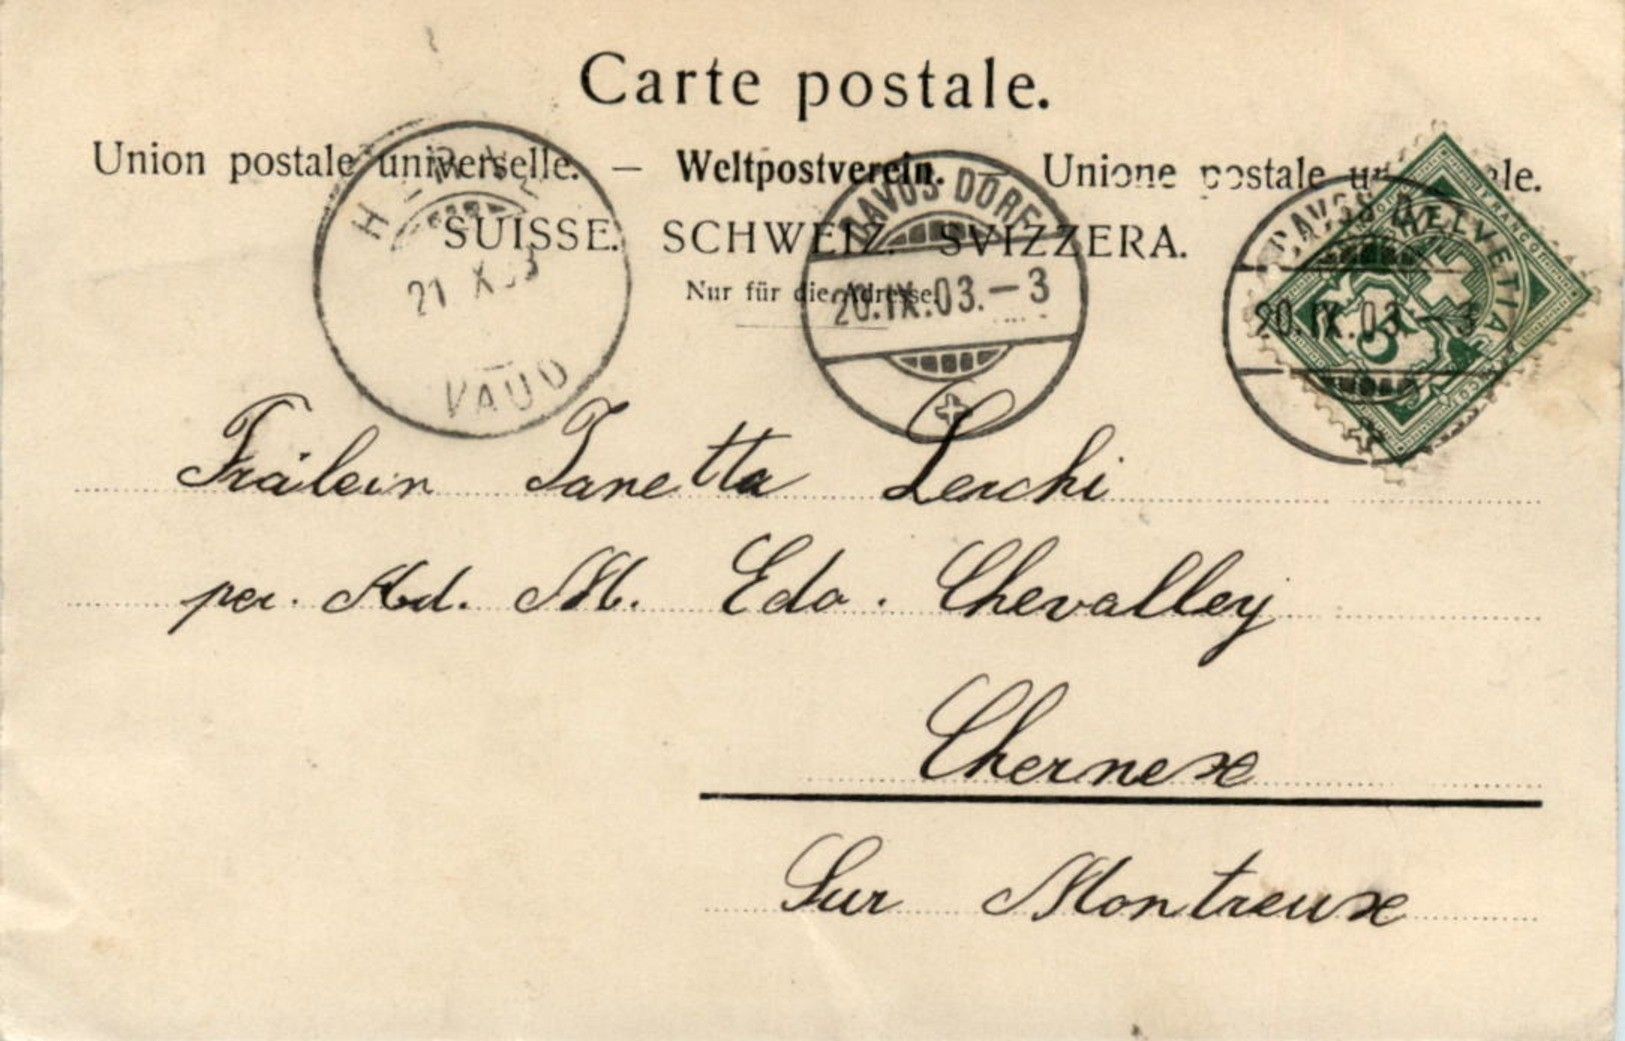 Carte postale.
Union postale universelle. — Weltpostverein. — Unione postale
SUISSE. SCHWEIZ. SVIZZERA.
Nur für die Adresse.
21 X 03
VAUD
DAVOS DORF
20.IX.03.–3
DAVOS D
20.IX.03.–3
HELVETIA
FRANCO
5
Fräulein Tanetta Lerchi
per. Ad. M. Edo. Chevalley
Chernex
Sur Montreux